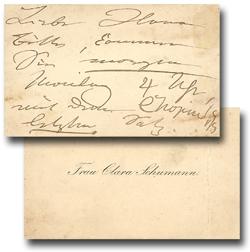 Liebe Ilona
Bitte, kommen
Sie morgen
Montag 4 Uhr
mit dem Chopin
letzten Satz
Frau Clara Schumann.